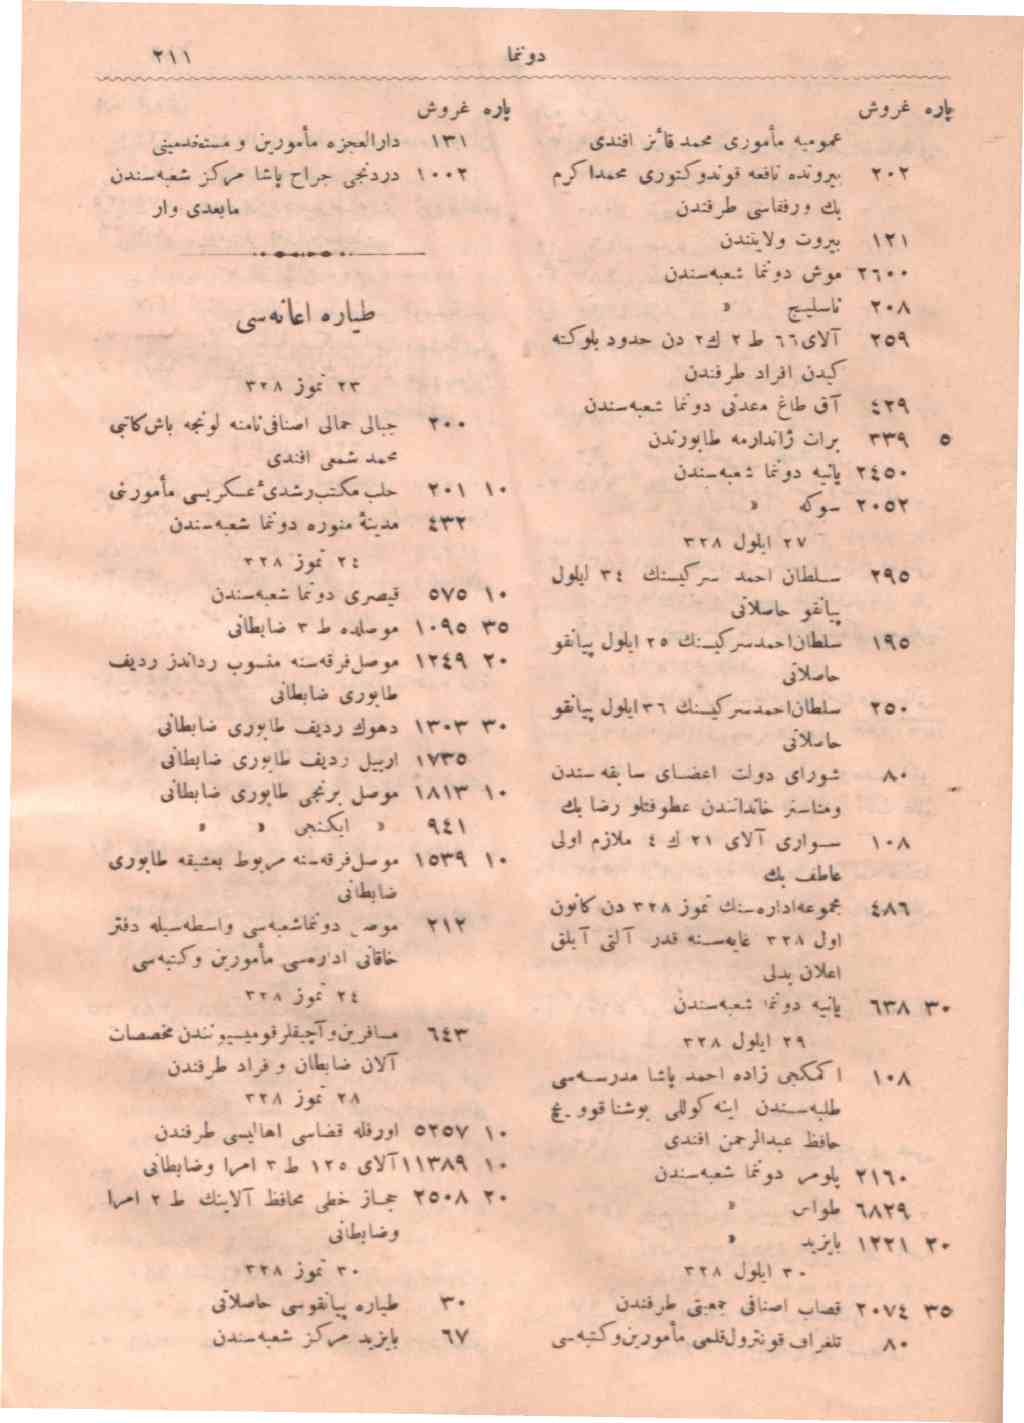 دوننما ٢١١
پاره غروش
عموميه مأمورى محمد فائز افندى
٢٠٢ بيرونده نافعه قوندوكتورى محمد اكرم
بك ورفقاسى طرفندن
١٢١ بيروت ولايتندن
٢٦٠٠ موش دوننما شعبه‌سندن
٢٠٨ ناسليج »
٢٥٩ آلاى ٦٦ ط ٢ ك ٢ دن حدود بلوكنه
كيدن افراد طرفندن
٤٢٩ آق طاغ معدنى دوننما شعبه‌سندن
٥ ٣٣٩ برات ژاندارمه طابورندن
٢٤٥٠ يانيه دوننما شعبه‌سندن
٢٠٥٢ سوكه »
٢٧ ايلول ٣٢٨
٢٩٥ سلطان احمد سركيسنك ٣٤ ايلول
پيانقو حاصلاتى
١٩٥ سلطان احمد سركيسنك ٢٥ ايلول پيانقو
حاصلاتى
٢٥٠ سلطان احمد سركيسنك ٣٦ ايلول پيانقو
حاصلاتى
٨٠ شوراى دولت اعضاى سابقه‌سندن
ومناستر خاندانندن عطوفتلو رضا بك
١٠٨ سوارى آلاى ٢١ ك ٤ ملازم اولى
عاطف بك
٤٨٦ مجموعه اداره‌سنك تموز ٣٢٨ دن كانون
اول ٣٢٨ غايه‌سنه قدر آلتى آيلق
اعلان بدلى
٣٠ ٦٣٨ يانيه دوننما شعبه‌سندن
٢٩ ايلول ٣٢٨
١٠٨ اكمكجى زاده احمد پاشا مدرسه‌سى
طلبه‌سندن اينه كوللى بوشناق
حافظ عبدالرحمن افندى
٢١٦٠ پلومر دوننما شعبه‌سندن
٦٨٢٩ طواس »
٣٠ ١٢٢١ بايزيد »
٣٠ ايلول ٣٢٨
٣٥ ٢٠٧٤ قصاب اصنافى جمعيتى طرفندن
٨٠ تلغراف قونترول قلمى مأمورين وكتبه‌سى
پاره غروش
١٣١ دارالعجزه مأمورين و مستخدمينى
١٠٠٢ دردنجى جراح پاشا مركز شعبه‌سندن
مابعدى وار
طياره اعانه‌سى
٢٣ تموز ٣٢٨
٢٠٠ جبالى حمالى اصنافى نامنه لونجه باش كاتبى
محمد شمعى افندى
١٠ ٢٠١ حلب مكتب رشدىٔ عسكريسى مأمورنى
٤٣٢ مدينۀ منوره دوننما شعبه‌سندن
٢٤ تموز ٣٢٨
١٠ ٥٧٥ قيصرى دوننما شعبه‌سندن
٣٥ ١٠٩٥ موصلده ط ٣ ضابطانى
٢٠ ١٢٤٩ موصل فرقه‌سنه منسوب رداندز رديف
طابورى ضابطانى
٣٠ ١٣٠٣ دهوك رديف طابورى ضابطانى
١٧٣٥ اربيل رديف طابورى ضابطانى
١٠ ١٨١٣ موصل برنجى طابورى ضابطانى
٩٤١ » ايكنجى » »
١٠ ١٥٣٩ موصل فرقه‌سنه مربوط بعشيقه طابورى
ضابطانى
٢١٢ موصل دوننما شعبه‌سى واسطه‌سيله دفتر
خاقانى اداره‌سى مأمورين وكتبه‌سى
٢٤ تموز ٣٢٨
٦٤٣ مسافرين و آچيقلر قوميسيونندن مخصصات
آلان ضابطان و فراد طرفندن
٢٨ تموز ٣٢٨
١٠ ٥٢٥٧ اورفله قضاسى اهاليسى طرفندن
١٠ ١١٣٨٩ آلاى ١٢٥ ط ٣ امرا وضابطانى
٢٠ ٢٥٠٨ حجاز خطى محافظ آلاينك ط ٢ امرا
وضابطانى
٣٠ تموز ٣٢٨
٣٠ طياره پيانقوسى حاصلاتى
٦٧ بايزيد مركز شعبه‌سندن